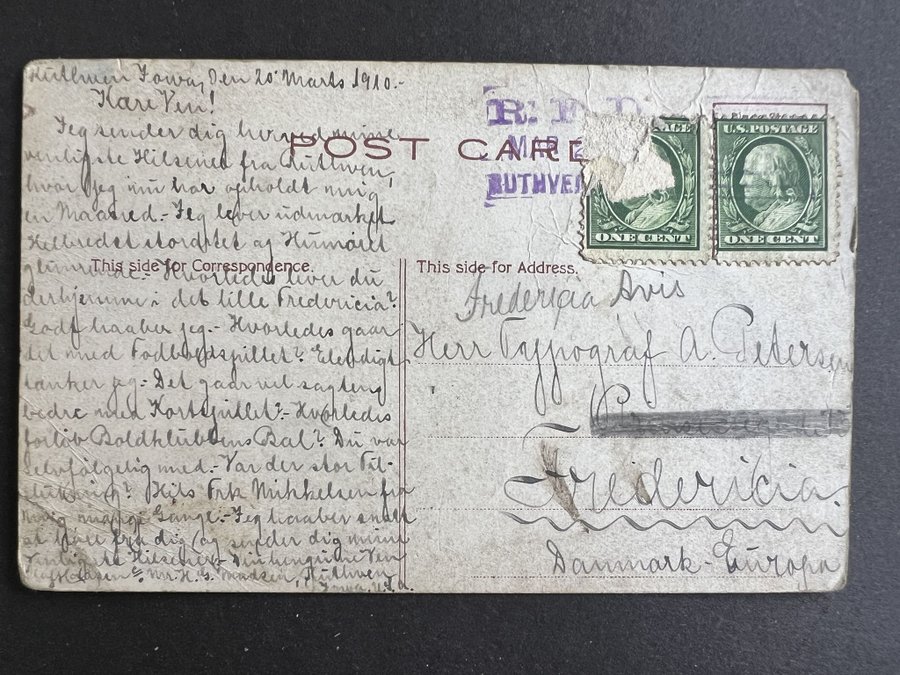 Ruthven Iowa, Den 20' Marts 1910.-
Kære Ven!
Jeg sender dig herved mine
venligste Hilsener fra Ruthven,
hvor jeg nu har opholdt mig
en Maaned.- Jeg lever udmærket
Helbredet storartet og Humøret
glimrende.- Hvorledes lever du
derhjemme i det lille Fredericia?
Godt haaber jeg.- Hvorledes gaar
det med Fodboldspillet? Elendigt
tænker jeg.- Det gaar vel sagtens
bedre med Kortspillet?- Hvorledes
forløb Boldklubbens Bal? Du var
selvfølgelig med.- Var der stor Til-
slutning? Hils Frk Mikkelsen fra
mig mange Gange.- Jeg haaber snart
at høre fra dig, og sender dig mine
venligste Hilsener.- Din hengivne Ven
Mr. H. S. Madsen, Ruthven
Iowa, U.S.A.
POST CARD
This side for Correspondence.
This side for Address.
R. F. D.
MAR 2
RUTHVEN
POSTAGE
ONE CENT
U.S. POSTAGE
ONE CENT
Fredericia Avis
Herr Typograf A. Petersen
Fredericia.
Danmark - Europa